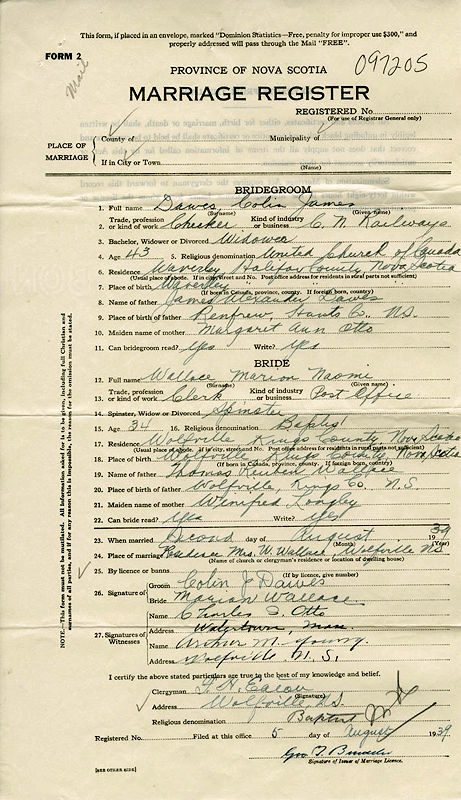 This form, if placed in an envelope, marked "Dominion Statistics—Free, penalty for improper use $300," and
properly addressed will pass through the Mail "FREE".
FORM 2
Mail
097205
PROVINCE OF NOVA SCOTIA
MARRIAGE REGISTER
REGISTERED No.
(For use of Registrar General only)
PLACE OF MARRIAGE
County of
Municipality of
If in City or Town
(Name)
BRIDEGROOM
1. Full name Dawes Colin James
(Surname) (Given name)
2. Trade, profession or kind of work Checker Kind of industry or business C. N. Railways
3. Bachelor, Widower or Divorced Widower
4. Age 43 5. Religious denomination United Church of Canada
6. Residence Waverley Halifax County, Nova Scotia
(Usual place of abode. If in city, street and No. Post office address for residents in rural parts not sufficient)
7. Place of birth Waverley
(If born in Canada, province, county. If foreign born, country)
8. Name of father James Alexander Dawes
9. Place of birth of father Renfrew, Hants Co., N.S.
10. Maiden name of mother Margaret Ann Otto
11. Can bridegroom read? Yes Write? Yes
BRIDE
12. Full name Wallace Marion Naomi
(Surname) (Given name)
13. Trade, profession or kind of work Clerk Kind of industry or business Post Office
14. Spinster, Widow or Divorced Spinster
15. Age 34 16. Religious denomination Baptist
17. Residence Wolfville, Kings County Nova Scotia
(Usual place of abode. If in city, street and No. Post office address for residents in rural parts not sufficient)
18. Place of birth Wolfville, Kings County, Nova Scotia
(If born in Canada, province, county. If foreign born, country)
19. Name of father Thomas Reuben Wallace
20. Place of birth of father Wolfville, Kings Co. N.S.
21. Maiden name of mother Winnifred Longley
22. Can bride read? Yes Write? Yes
23. When married Second day of August 1939
(Month) (Year)
24. Place of marriage Residence Mrs. W. Wallace, Wolfville NS
(Name of church or clergyman's residence or location of dwelling house)
25. By licence or banns
(If by licence, give number)
26. Signature of
Groom Colin J Dawes
Bride Marion Wallace
27. Signatures of Witnesses
Name Charles S. Otto
Address Watertown, Mass.
Name Arthur M. Young.
Address Wolfville N.S.
I certify the above stated particulars are true to the best of my knowledge and belief.
Clergyman G. N. Eaton
(Signature)
Address Wolfville, N.S.
Religious denomination Baptist
Registered No. Filed at this office 5 day of August 1939
Geo. T.
Signature of Issuer of Marriage Licence.
[SEE OTHER SIDE]
NOTE.—This form must not be mutilated. All information asked for is to be given, including full Christian and
surnames of all parties, and if for any reason this is impossible, the reason for the omission must be stated.